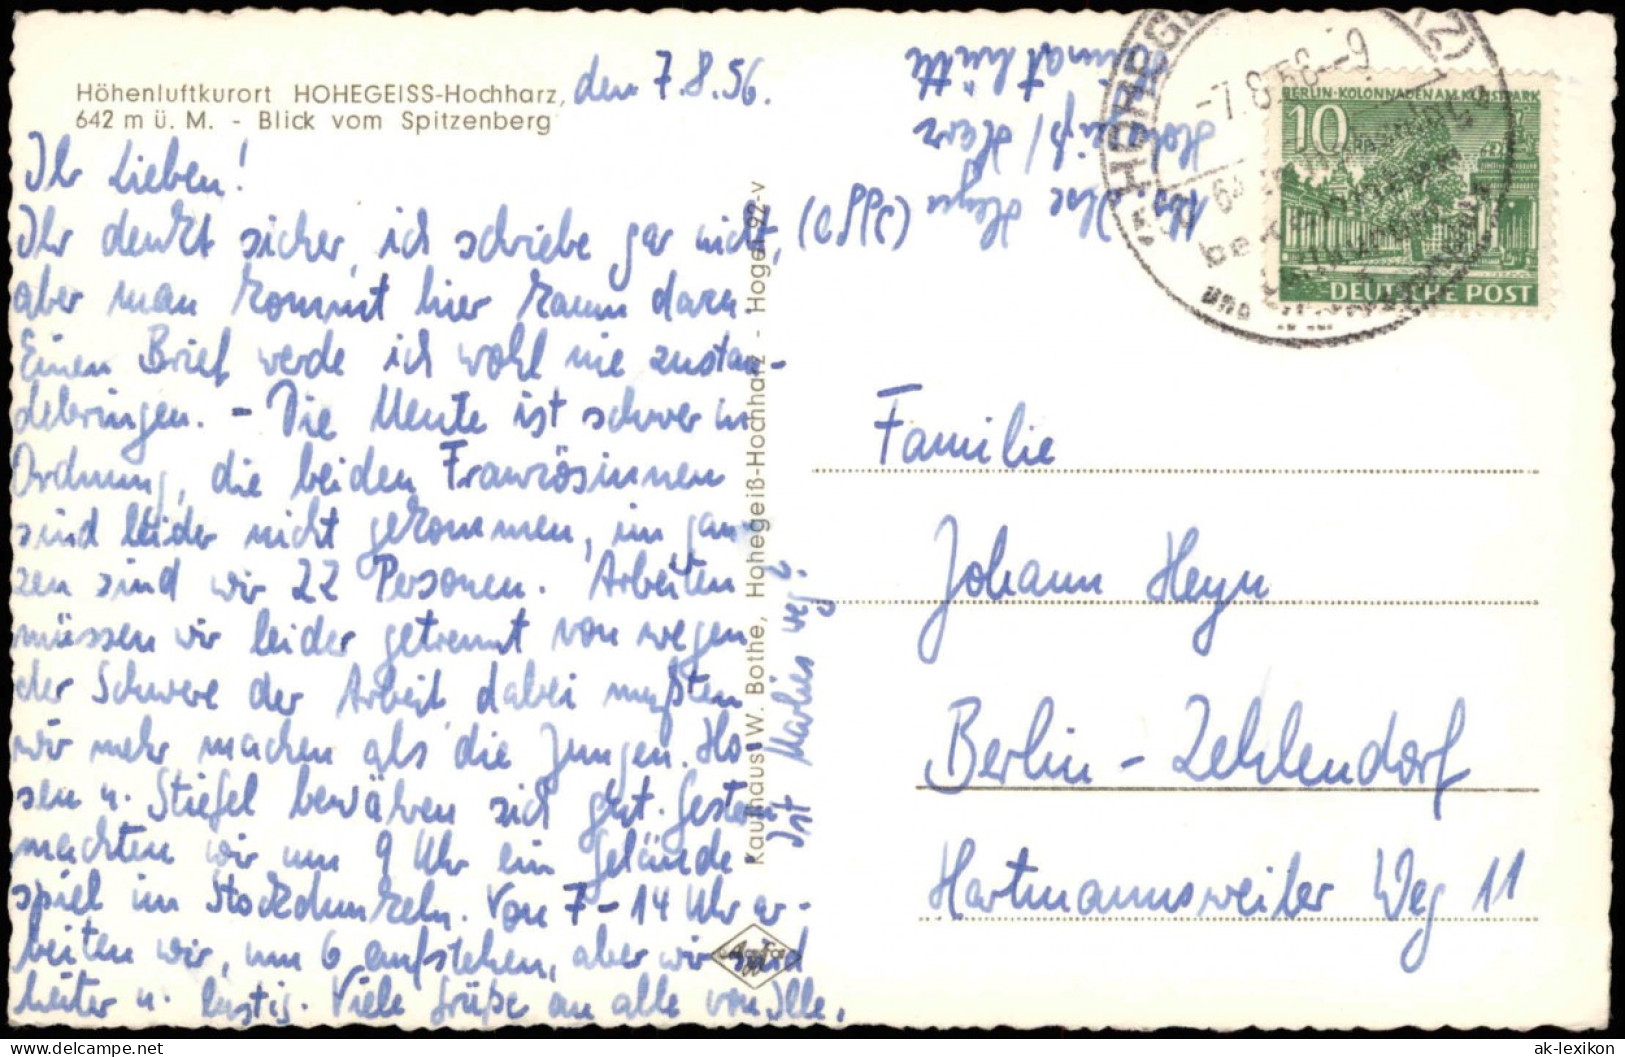 Höhenluftkurort HOHEGEISS-Hochharz, den 7.8.56.
642 m ü. M. - Blick vom Spitzenberg
Ihr Lieben!
Ihr denkt sicher, ich schriebe gar nicht,
aber man kommt hier kaum dazu
Einen Brief werde ich wohl nie zustan-
debringen. - Die Meute ist schwer in
Ordnung, die beiden Französinnen
sind leider nicht gekommen, im gan-
zen sind wir 22 Personen. Arbeiten
müssen wir leider getrennt von wegen
der Schwere der Arbeit dabei mußten
wir mehr machen als die Jungen. Ho
sen u. Stiefel bewähren sich gut. Gestern
machten wir um 9 Uhr ein Gelände
spiel im Stockdunkeln. Von 7-14 Uhr ar-
beiten wir, um 6 aufstehen, aber wir sind
heiter u. lustig. Viele Grüße an alle von Ille.
Ist Marlies weg?
Kaufhaus W. Bothe, Hohegeiß-Hochharz - Hogei 92-v
Agfa
Abs Ilse Heyn
Hohegeiß/Harz
HOHEGE
-7.8.56.-9
BERLIN-KOLONNADEN AM KLEISTPARK
10
DEUTSCHE POST
Familie
Johann Heyn
Berlin-Zehlendorf
Hartmannsweiler Weg 11
delcampe.net
ak-lexikon